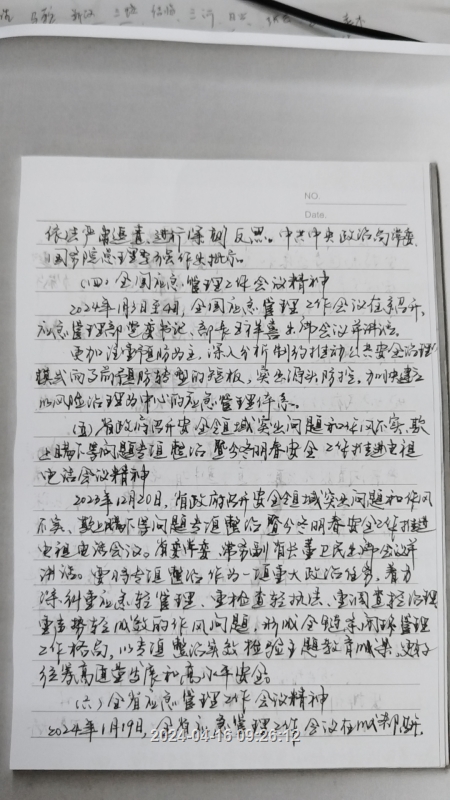 NO.
Date.
依法严肃追责,进行深刻反思。中共中央政治局常委、
国务院总理李强作出批示。
(四)全国应急管理工作会议精神
2024年1月5日至6日,全国应急管理工作会议在京召开,
应急管理部党委书记、部长王祥喜出席会议并讲话。
更加注重预防为主,深入分析制约推动公共安全治理
模式向事前预防转型的短板,突出源头防控,加快建立
以风险治理为中心的应急管理体系。
(五)省政府召开安全领域突出问题和作风不实、欺
上瞒下等问题专项整治暨今冬明春安全工作推进电视
电话会议精神
2023年12月20日,省政府召开安全领域突出问题和作风
不实、欺上瞒下等问题专项整治暨今冬明春安全工作推进
电视电话会议。省委常委、常务副省长董卫民出席会议并
讲话。要将专项整治作为一项重大政治任务,着力
纠重应急轻管理、重检查轻执法、重调查轻治理、
重声势轻成效的作风问题,形成全链条闭环管理
工作格局,以专项整治实效检验主题教育成果,更好
统筹高质量发展和高水平安全。
(六)全省应急管理工作会议精神
2024年1月19日,全省应急管理工作会议在成都召开。
2024-04-16 09:26:12